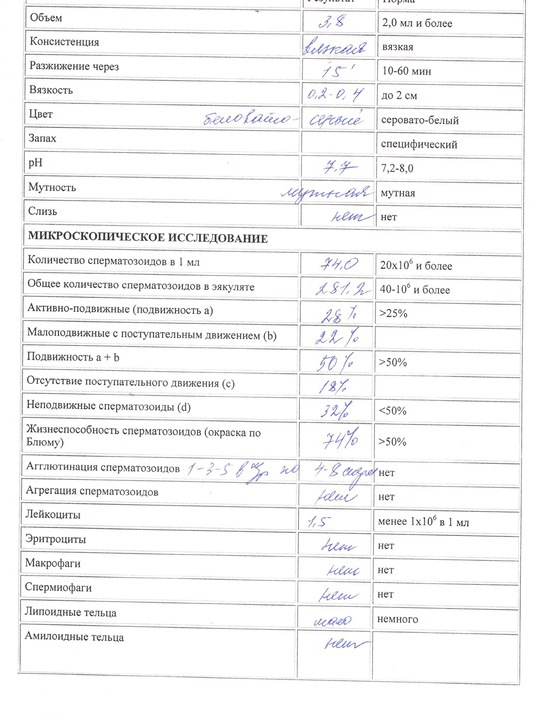 Результат Норма
Объем 3,8 2,0 мл и более
Консистенция вязкая вязкая
Разжижение через 15' 10-60 мин
Вязкость 0,2-0,4 до 2 см
Цвет беловато-серый серовато-белый
Запах специфический
pH 7,7 7,2-8,0
Мутность мутная мутная
Слизь нет нет
МИКРОСКОПИЧЕСКОЕ ИССЛЕДОВАНИЕ
Количество сперматозоидов в 1 мл 74,0 20x10⁶ и более
Общее количество сперматозоидов в эякуляте 281,2 40-10⁶ и более
Активно-подвижные (подвижность а) 28% >25%
Малоподвижные с поступательным движением (b) 22%
Подвижность a + b 50% >50%
Отсутствие поступательного движения (с) 18%
Неподвижные сперматозоиды (d) 32% <50%
Жизнеспособность сперматозоидов (окраска по
Блюму) 74% >50%
Агглютинация сперматозоидов 1-3-5 в п/зр по 4-8 нет
Агрегация сперматозоидов нет нет
Лейкоциты 1,5 менее 1x10⁶ в 1 мл
Эритроциты нет нет
Макрофаги нет нет
Спермиофаги нет нет
Липоидные тельца мало немного
Амилоидные тельца нет